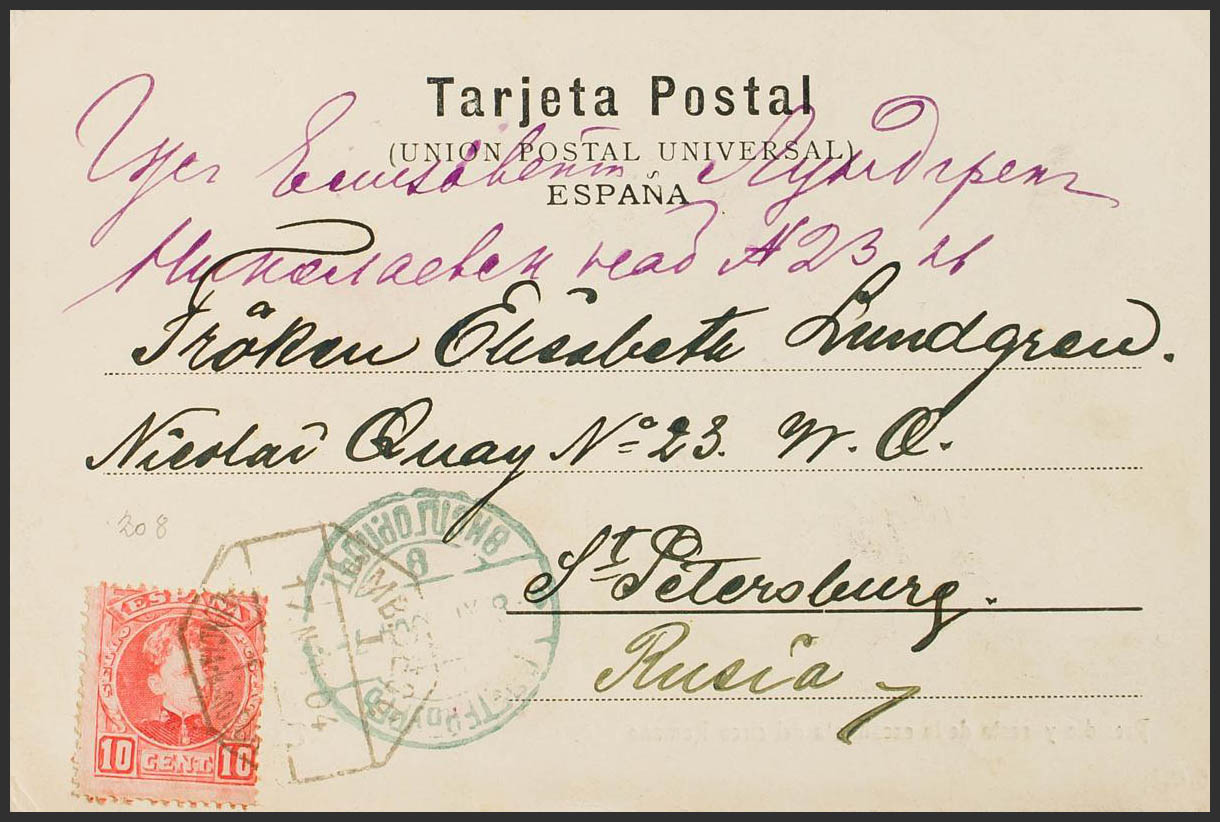 Tarjeta Postal
(UNION POSTAL UNIVERSAL)
ESPAÑA
Елизавет Лундгрен
Николаевск наб № 23
Fröken Elisabeth Lundgren.
Nicolai Quay Nº 23. W. O.
208
St. Petersburg.
Rusia
ESPAÑA
10 CENT. 10